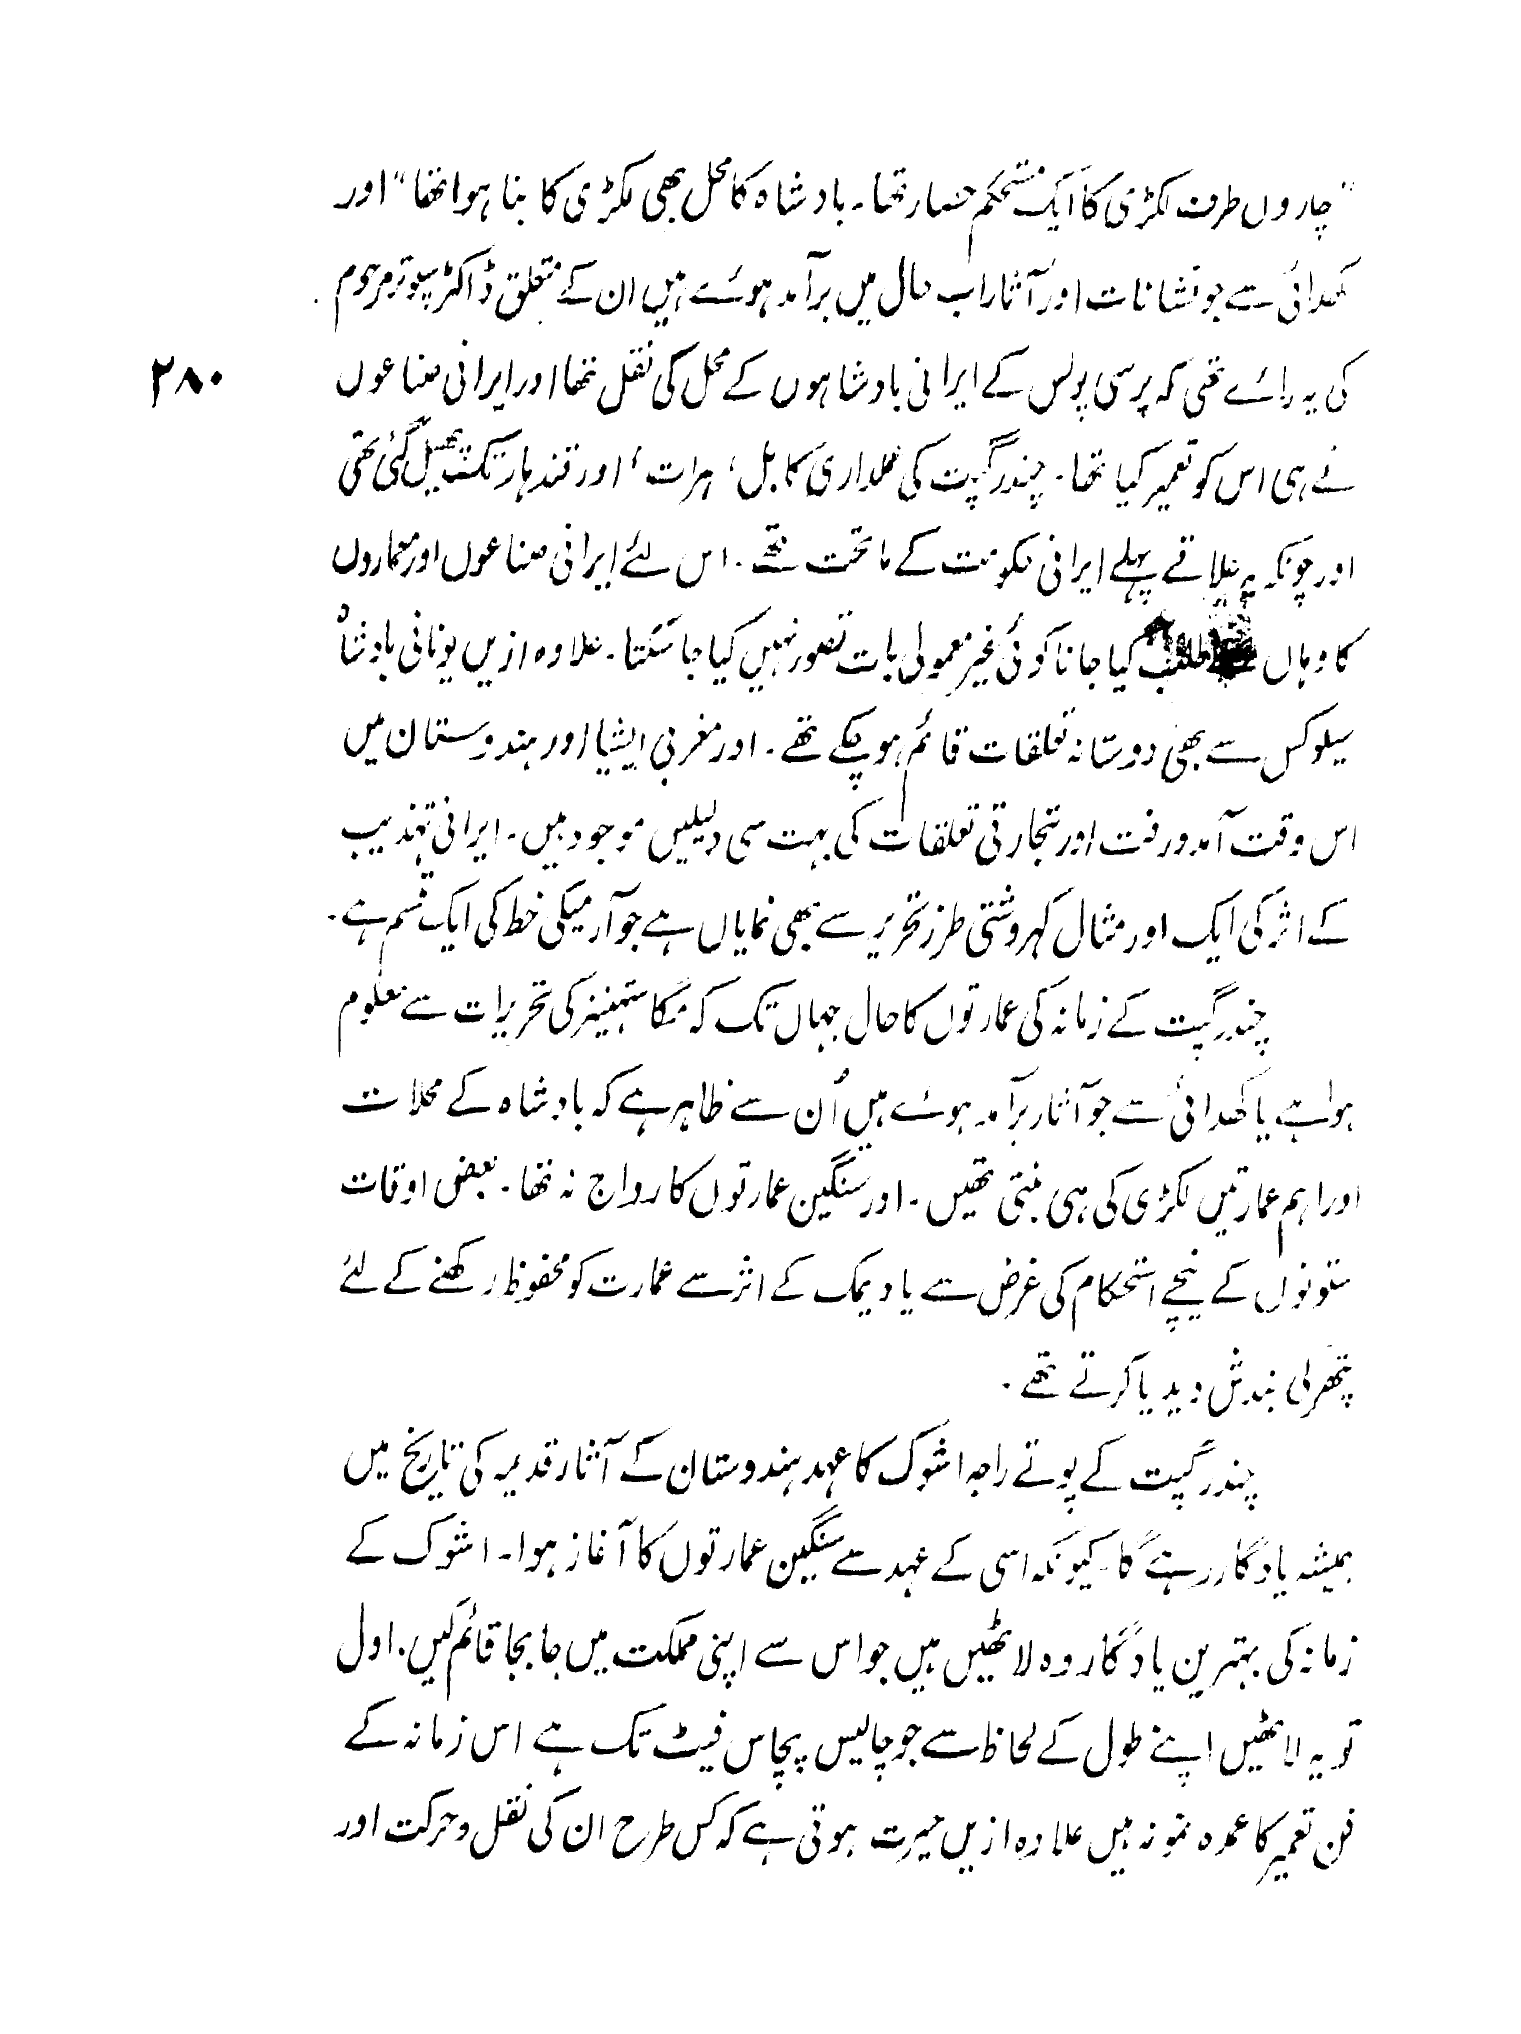 "چاروں طرف لکڑی کا ایک مستحکم حصار تھا۔ بادشاہ کا محل بھی لکڑی کا بنا ہوا تھا" اور
کھدائی سے جو نشانات اور آثار اب حال میں برآمد ہوئے ہیں ان کے متعلق ڈاکٹر سپونر مرحوم
کی یہ رائے تھی کہ پرسی پولس کے ایرانی بادشاہوں کے محل کی نقل تھا اور ایرانی صناعوں
۲۸۰
نے ہی اس کو تعمیر کیا تھا۔ چندر گپت کی عملداری کابل، ہرات، اور قندہار تک پھیل گئی تھی
اور چونکہ یہ علاقے پہلے ایرانی حکومت کے ماتحت تھے۔ اس لئے ایرانی صناعوں اور معماروں
کا وہاں سے طلب کیا جانا کوئی غیر معمولی بات تصور نہیں کیا جا سکتا۔ علاوہ ازیں یونانی بادشاہ
سیلوکس سے بھی دوستانہ تعلقات قائم ہو چکے تھے۔ اور مغربی ایشیا اور ہندوستان میں
اس وقت آمد و رفت اور تجارتی تعلقات کی بہت سی دلیلیں موجود ہیں۔ ایرانی تہذیب
کے اثر کی ایک اور مثال کہروشتی طرز تحریر سے بھی نمایاں ہے جو آرمیکی خط کی ایک قسم ہے۔
چندر گپت کے زمانہ کی عمارتوں کا حال جہاں تک کہ مگاستھینز کی تحریرات سے معلوم
ہوا ہے یا کھدائی سے جو آثار برآمد ہوئے ہیں اُن سے ظاہر ہے کہ بادشاہ کے محلات
اور اہم عمارتیں لکڑی کی ہی بنتی تھیں۔ اور سنگین عمارتوں کا رواج نہ تھا۔ بعض اوقات
ستونوں کے نیچے استحکام کی غرض سے یا دیمک کے اثر سے عمارت کو محفوظ رکھنے کے لئے
پتھر لی بندش دیدیا کرتے تھے۔
چندر گپت کے پوتے راجہ اشوک کا عہد ہندوستان کے آثار قدیمہ کی تاریخ میں
ہمیشہ یادگار رہے گا۔ کیونکہ اسی کے عہد سے سنگین عمارتوں کا آغاز ہوا۔ اشوک کے
زمانہ کی بہترین یادگار وہ لاٹھیں ہیں جو اس سے اپنی مملکت میں جا بجا قائم کیں۔ اول
تو یہ لاٹھیں اپنے طول کے لحاظ سے جو چالیس پچاس فیٹ تک ہے اس زمانہ کے
فن تعمیر کا عمدہ نمونہ ہیں علاوہ ازیں حیرت ہوتی ہے کہ کس طرح ان کی نقل و حرکت اور